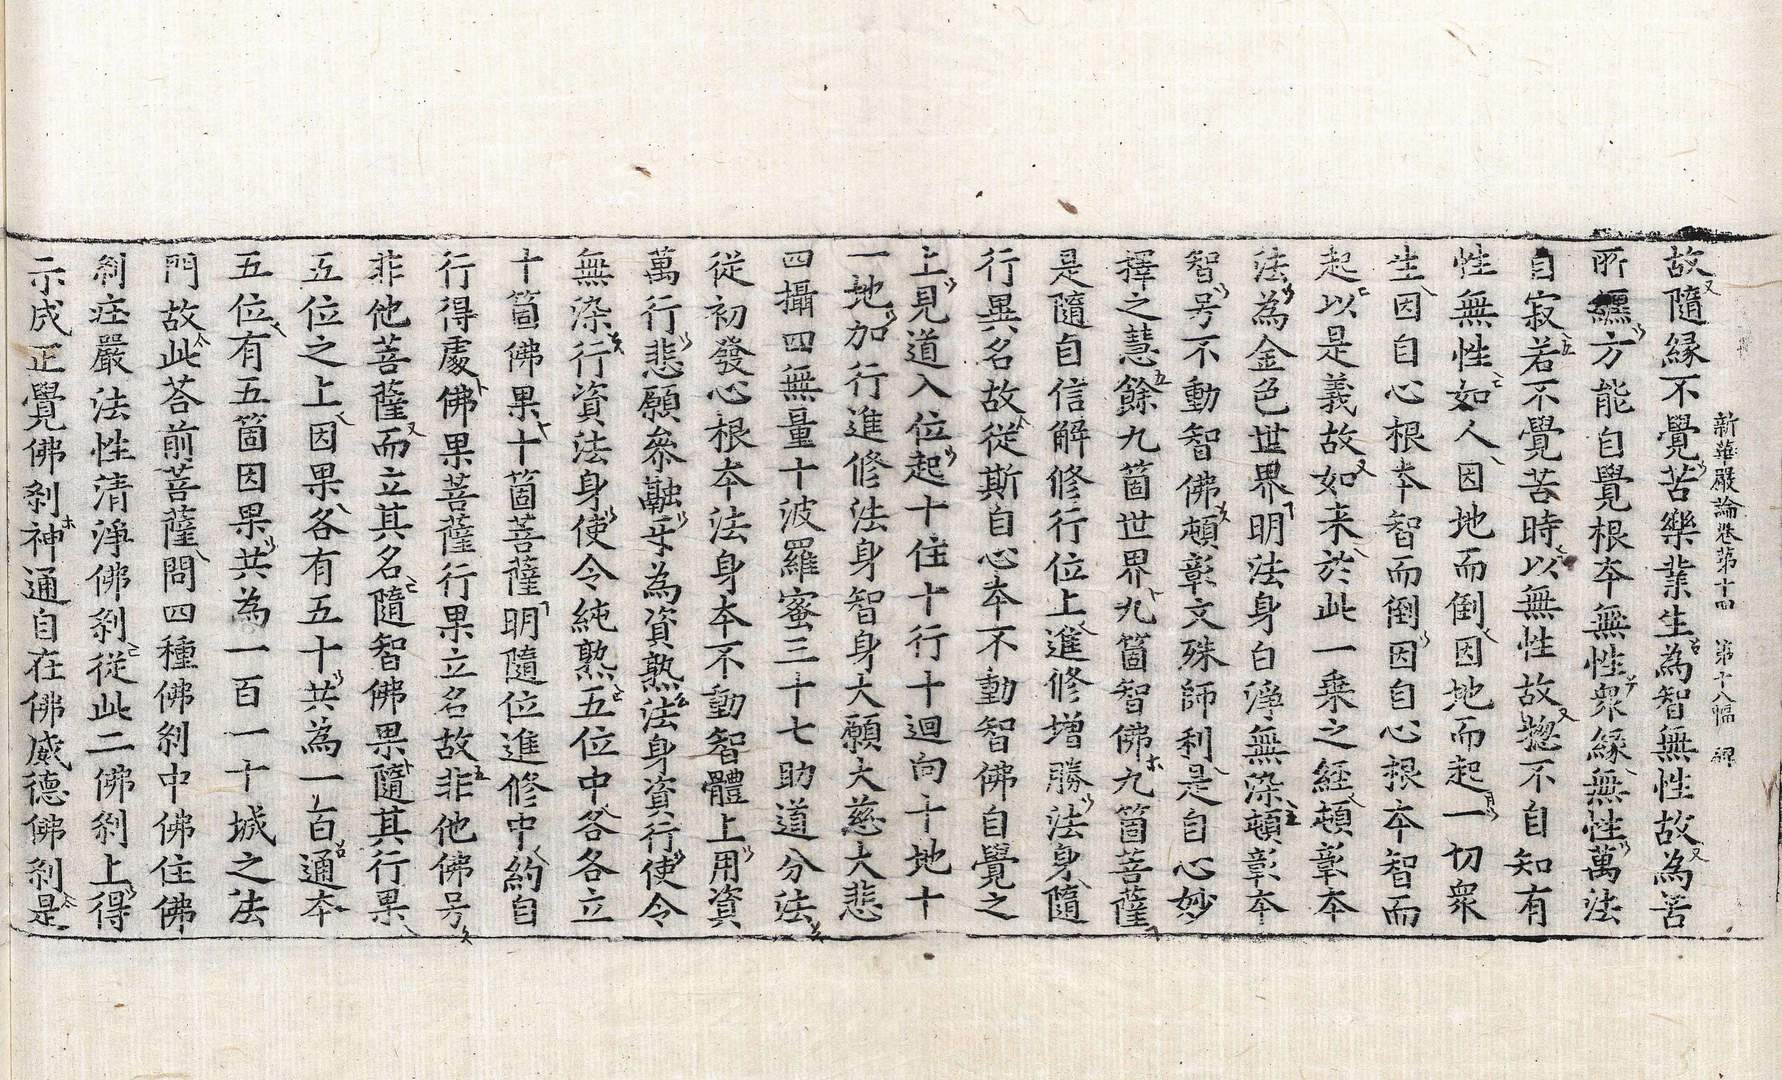 新華嚴論卷第十四　第十八幅
故隨緣不覺苦樂業生為智無性故為苦
所纏方能自覺根本無性衆緣無性萬法
自寂若不覺苦時以無性故㹅不自知有
性無性如人因地而倒因地而起一切衆
生因自心根本智而倒因自心根本智而
起以是義故如来於此一乗之經頓彰本
法為金色世界明法身白淨無染頓彰本
智号不動智佛頓彰文殊師利是自心妙
擇之慧餘九箇世界九箇智佛九箇菩薩
是隨自信解修行位上進修增勝法身隨
行異名故從斯自心本不動智佛自覺之
上見道入位起十住十行十迴向十地十
一地加行進修法身智身大願大慈大悲
四攝四無量十波羅蜜三十七助道分法
從初發心根本法身本不動智體上用資
萬行悲願參融㸦為資熟法身資行使令
無染行資法身使令純熟五位中各各立
十箇佛果十箇菩薩明隨位進修中約自
行得處佛果菩薩行果立名故非他佛号
非他菩薩而立其名隨智佛果隨其行果
五位之上因果各有五十共為一百通本
五位有五箇因果共為一百一十城之法
門故此荅前菩薩問四種佛刹中佛住佛
刹庄嚴法性清淨佛刹從此二佛刹上得
示成正覺佛刹神通自在佛威德佛刹是